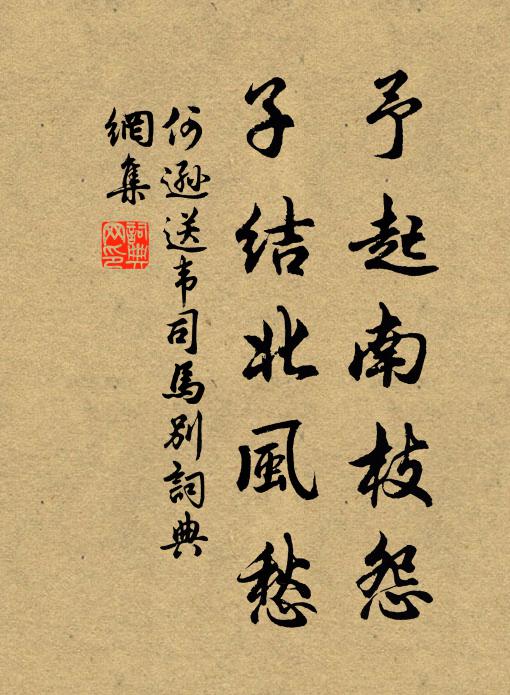 予起南枝怨
子結北風愁
何遜送韦司馬別詞典
網集
詞典
网印